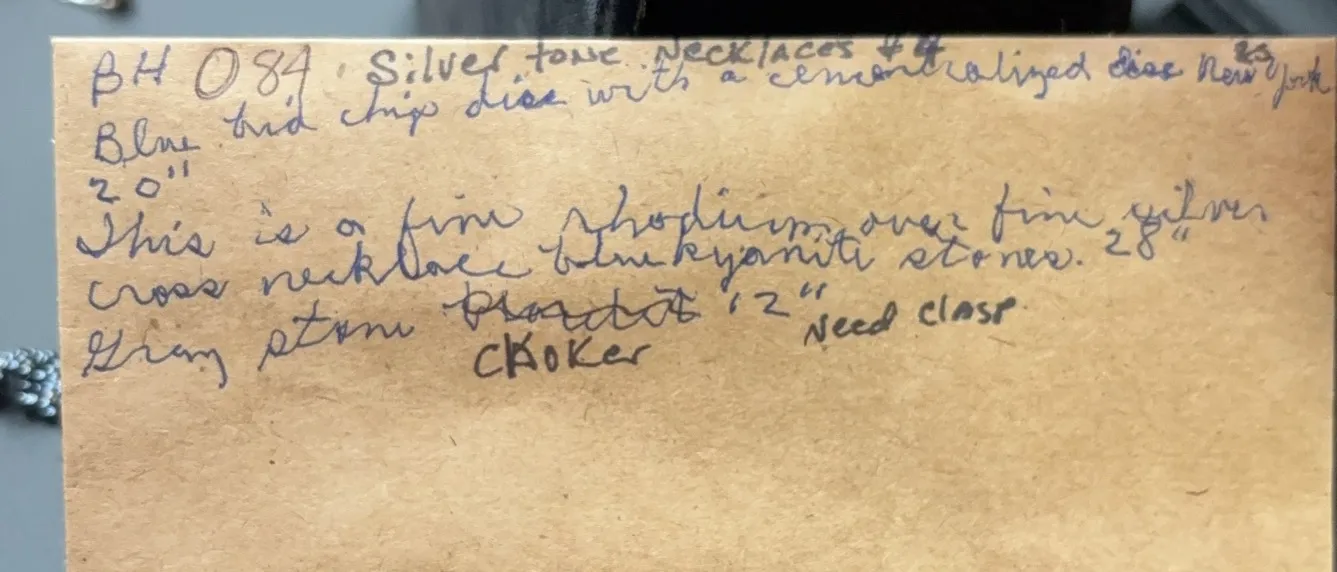 BH 084 Silver tone Necklaces #4
Blue bid chip disc with a cemontralized disc New York 23
20"
This is a fine rhodium over fine silver
cross necklace blue kyanite stones. 28"
Gray stone 12" Need clasp
CHOKER